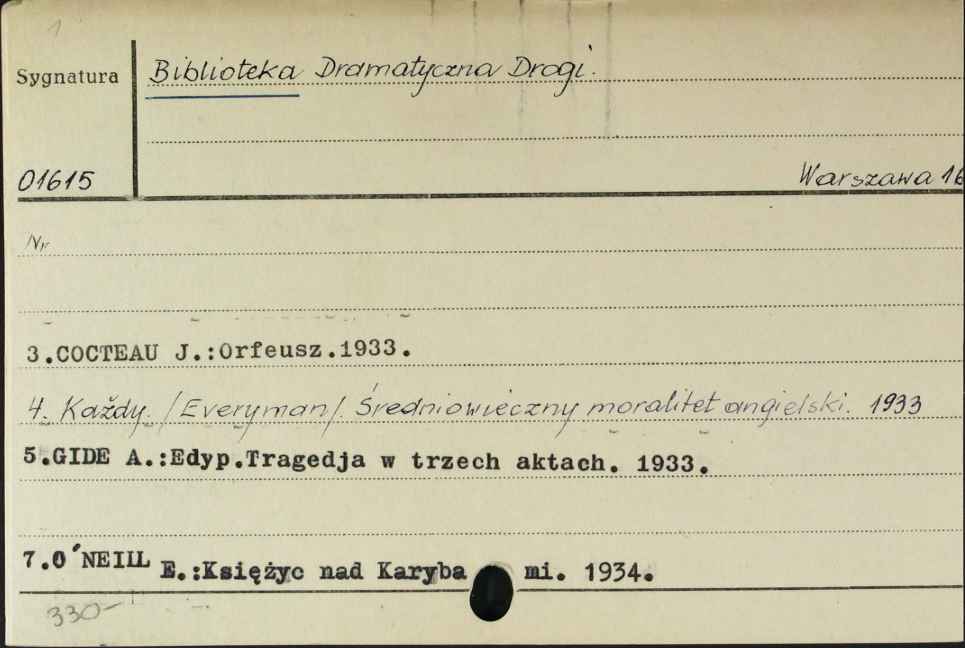 1
Sygnatura
Biblioteka Dramatyczna Drogi.
01615
Warszawa 16
Nr
3.COCTEAU J.:Orfeusz.1933.
4. Każdy. /Everyman/. Średniowieczny moralitet angielski. 1933
5.GIDE A.:Edyp.Tragedja w trzech aktach. 1933.
7.O'NEILL E.:Księżyc nad Karyba mi. 1934.
330-